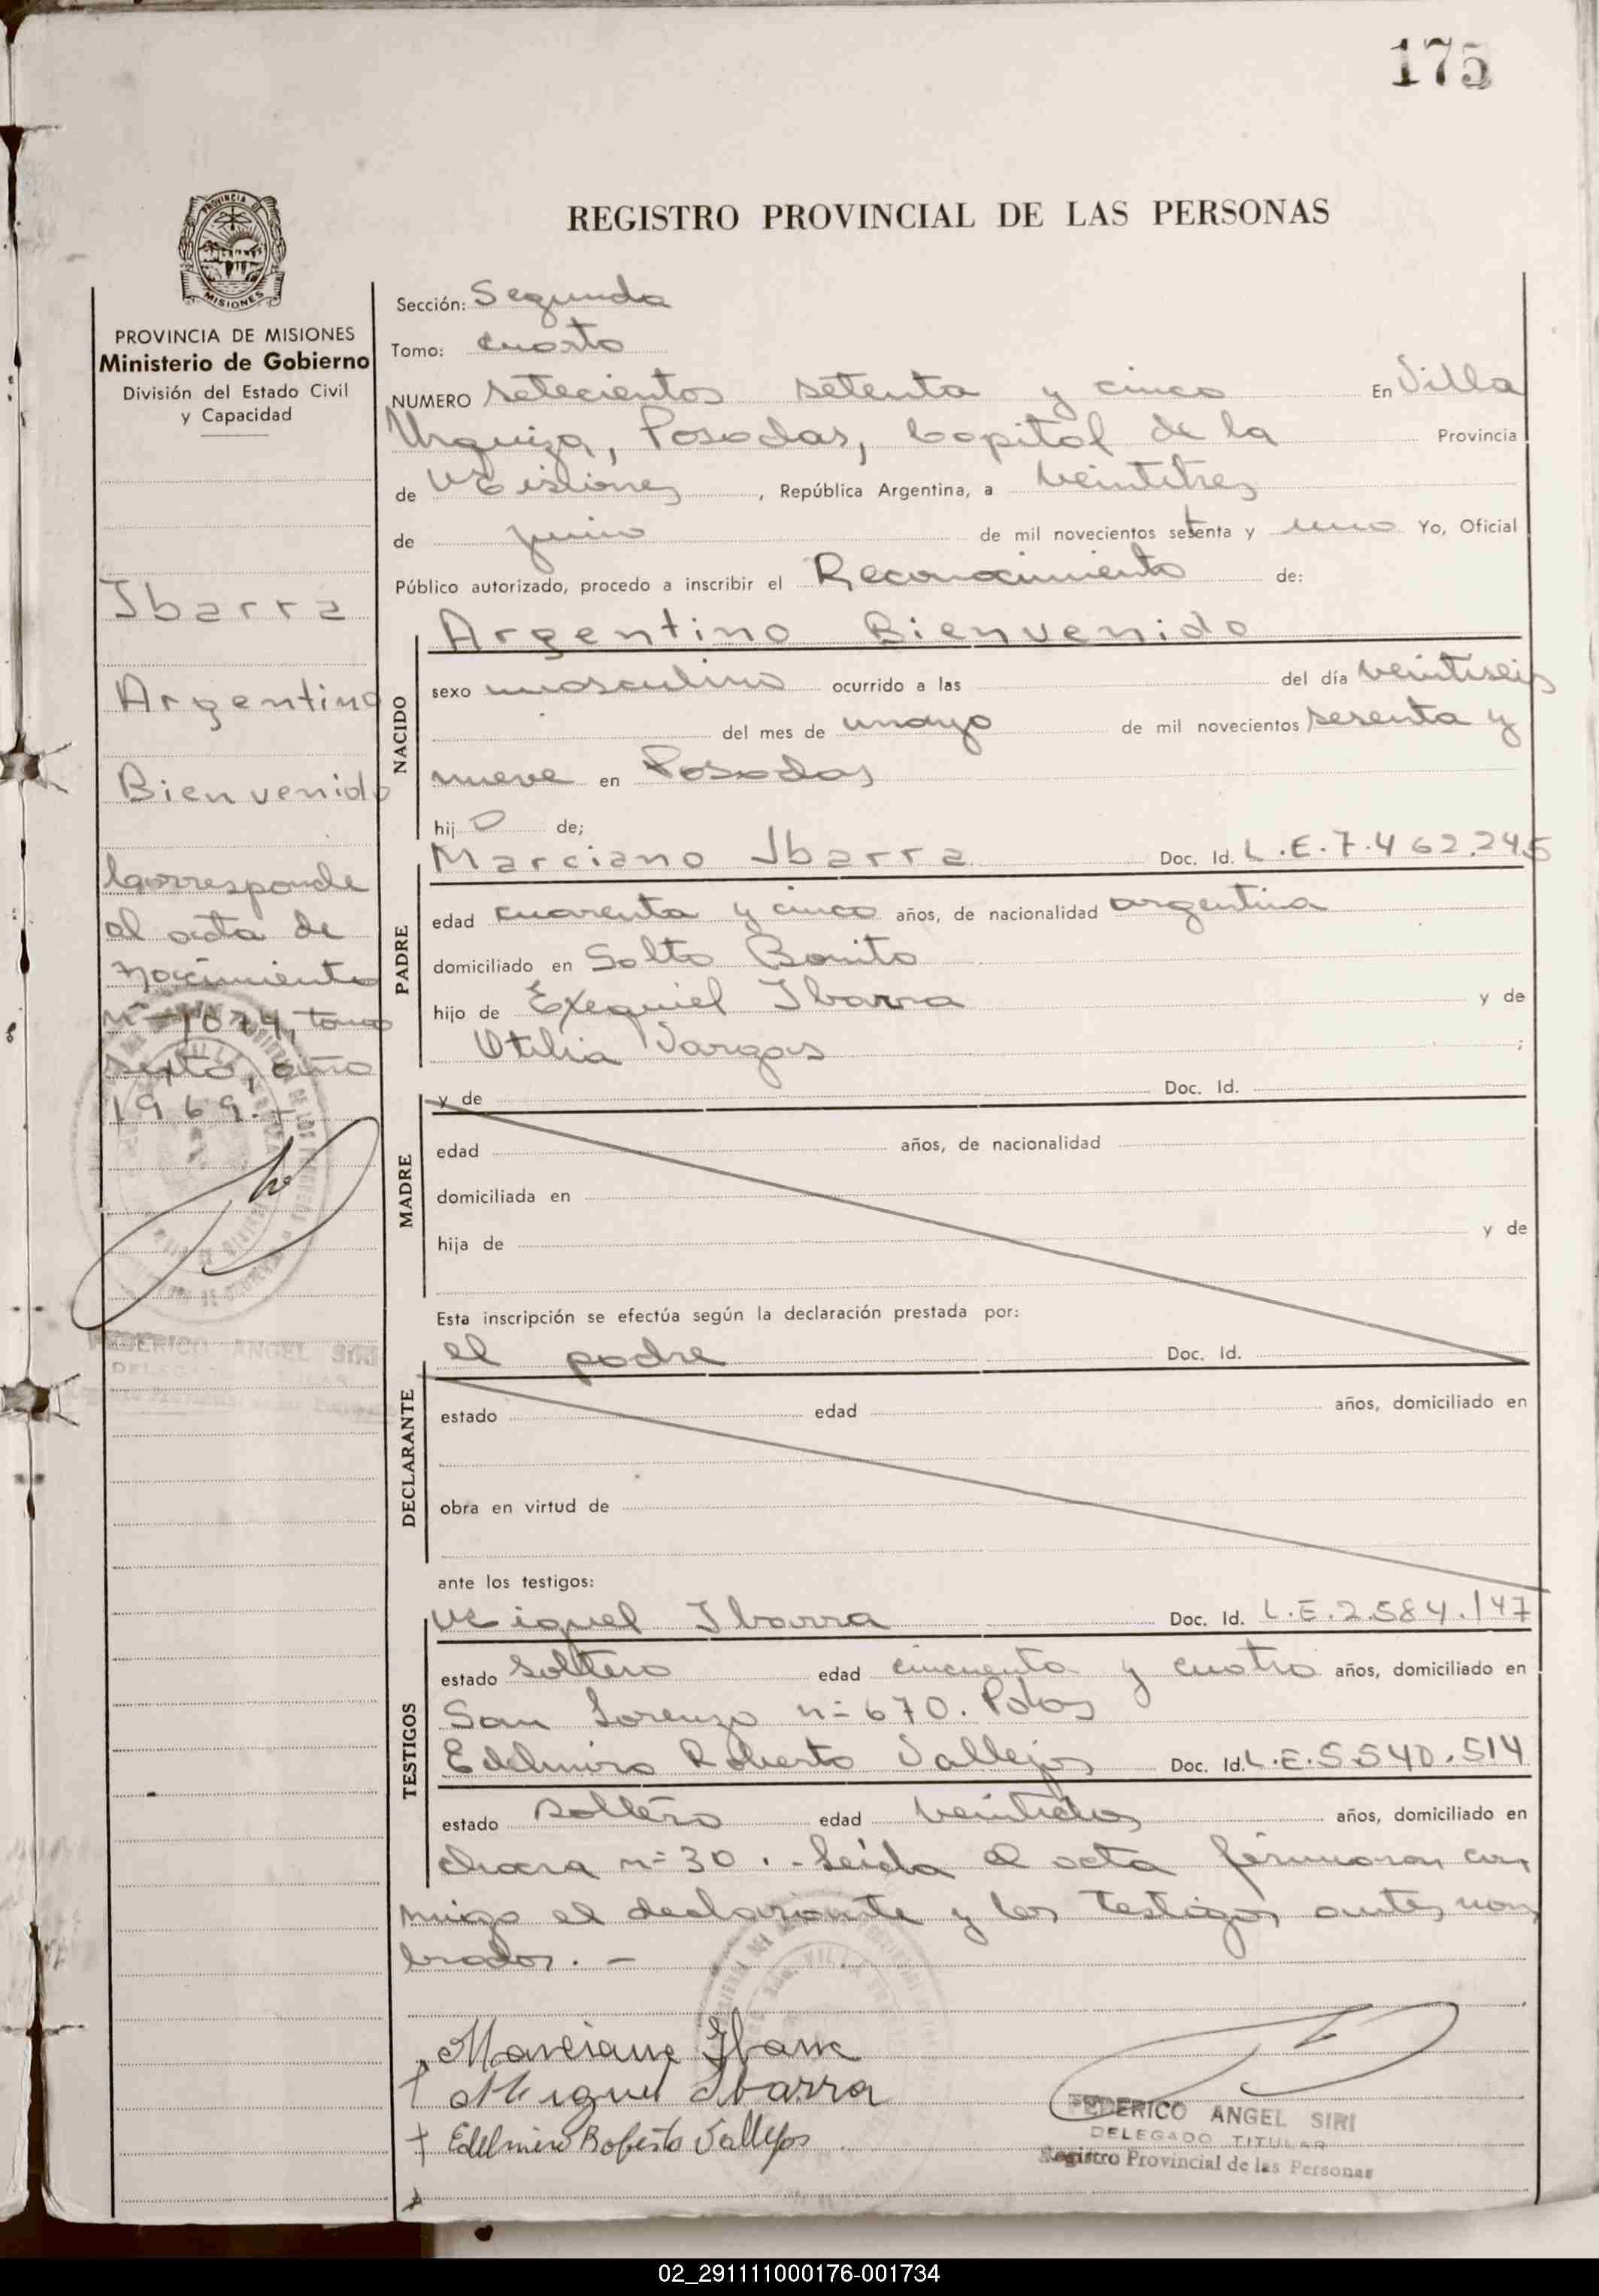 175
REGISTRO PROVINCIAL DE LAS PERSONAS
PROVINCIA DE MISIONES
Ministerio de Gobierno
División del Estado Civil
y Capacidad
Ibarra
Argentino
Bienvenido
Corresponde
al acta de
Nacimiento
nº 1074, tomo
sexto, año
1969.-
FEDERICO ANGEL SIRI
Sección: Segunda
Tomo: cuarto
NUMERO setecientos setenta y cinco En Villa
Urquiza, Posadas, Capital de la Provincia
de Misiones, República Argentina, a veintitres
de junio de mil novecientos setenta y uno Yo, Oficial
Público autorizado, procedo a inscribir el Reconocimiento de:
Argentino Bienvenido
NACIDO
sexo masculino ocurrido a las del día veintiseis
del mes de mayo de mil novecientos sesenta y
nueve en Posadas
hijo de;
Marciano Ibarra Doc. Id. L.E.7.462.245
PADRE
edad cuarenta y cinco años, de nacionalidad argentina
domiciliado en Salto Bonito
hijo de Exequiel Ibarra y de
Otilia Vargas ;
y de Doc. Id.
MADRE
edad años, de nacionalidad
domiciliada en
hija de y de
Esta inscripción se efectúa según la declaración prestada por:
el padre Doc. Id.
DECLARANTE
estado edad años, domiciliado en
obra en virtud de
ante los testigos:
Miguel Ibarra Doc. Id. L.E.2.584.147
TESTIGOS
estado soltero edad cincuenta y cuatro años, domiciliado en
San Lorenzo nº 670. Pdas
Edelmiro Roberto Vallejos Doc. Id. L.E.5.540.514
estado soltero edad veintidos años, domiciliado en
chacra nº 30.- Leída el acta firmaron con
migo el declarante y los testigos antes nom
brados.-
Marciano Ibarra
Miguel Ibarra
Edelmiro Roberto Vallejos
FEDERICO ANGEL SIRI
DELEGADO TITULAR
Registro Provincial de las Personas
02_291111000176-001734